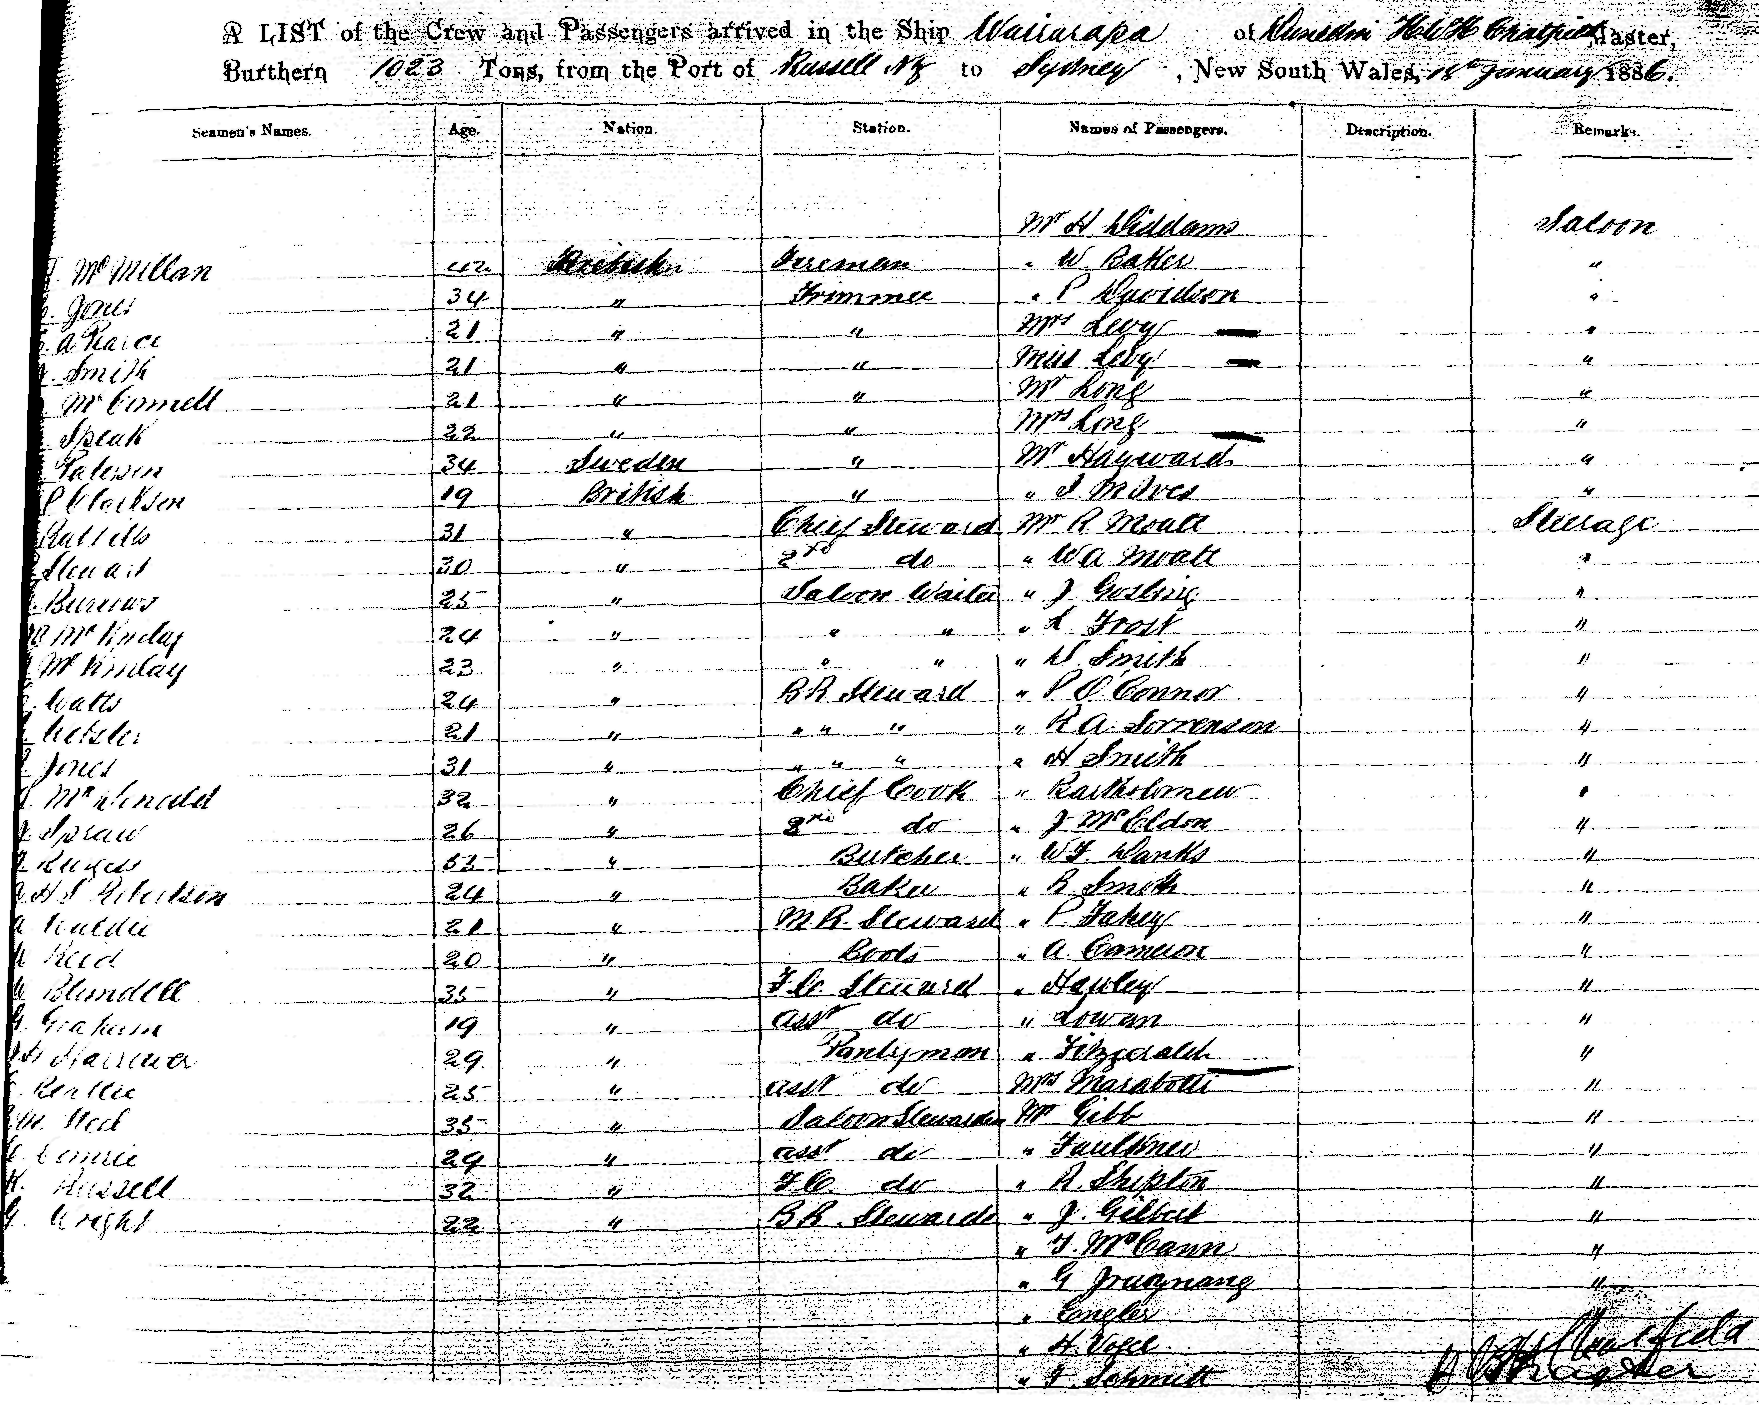 A LIST of the Crew and Passengers arrived in the Ship Wairarapa of Dunedin H W H Chatfield Master,
Burthern 1023 Tons, from the Port of Russell NZ to Sydney, New South Wales, 18th January 1886.
Seamen's Names. Age. Nation. Station. Names of Passengers. Description. Remarks.
Mr H Diddams Saloon
McMillan 42 British Fireman " W. Baker "
Jones 34 " Trimmer " P Davidson "
A Pearce 21 " " Mrs Levy "
Smith 21 " " Miss Levy "
McConnell 21 " " Mr Long "
Speak 22 " " Mrs Long "
34 Sweden " Mr Hayward "
P Clarkson 19 British " "
31 " Chief Steward Mr R Moatt Steerage
Stewart 30 " 2nd do " W A Moatt "
Burrows 25 " Saloon Waiter " J Gosling "
24 " " " " L Frost "
McKinlay 23 " " " " D. Smith "
Watts 24 " B R Steward " P O'Connor "
21 " " " " " R A. Sorrenson "
Jones 31 " " " " " H Smith "
32 " Chief Cook " Bartholomew "
Spraw 26 " 2nd do " J McEldon "
" Butcher " W F Danks "
H S Robertson 24 " Baker " R Smith "
21 " M R. Steward " P Fahey "
Reid 20 " Boots " A. Cameron "
Blundell 35 " F.C. Steward " Hawley "
G. Graham 19 " asst do " Lowan "
29 " Pantryman " Fitzgerald "
25 " asst do Mrs Marabotti "
35 " Saloon Stewardess Mr Gibb "
29 " asst do " Faulkner "
H. Russell 32 " F.C. do " R. Shipton "
G. Wright 22 " B R. Stewardess " J. Gilbert "
" T. McCann "
" G "
" Engler
" H. Vogel
" F. Schmitt